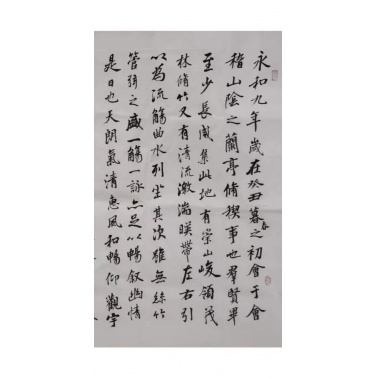 永和九年歲在癸丑暮春之初會于會
稽山陰之蘭亭脩稧事也羣賢畢
至少長咸集此地有崇山峻領茂
林脩竹又有清流激湍暎帶左右引
以為流觴曲水列坐其次雖無絲竹
管弦之盛一觴一詠亦足以暢敘幽情
是日也天朗氣清惠風和暢仰觀宇